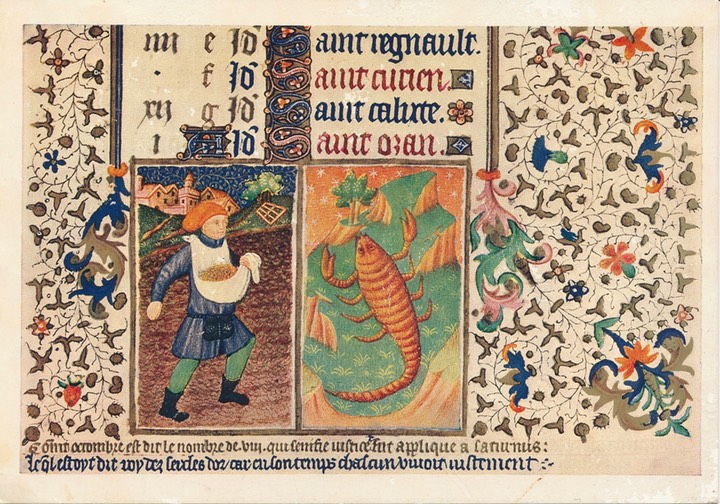 iiii e Id Saint regnault.
. f Id Saint curien.
xii g Id Saint calixte.
i A Id Saint ozan.
Comt octombre est dit le nombre de viii. qui senifie iustice fut applique a saturnus:
Le ql estoyt dit roy dez secles dor/car en son temps chascun vivoit iustement:~